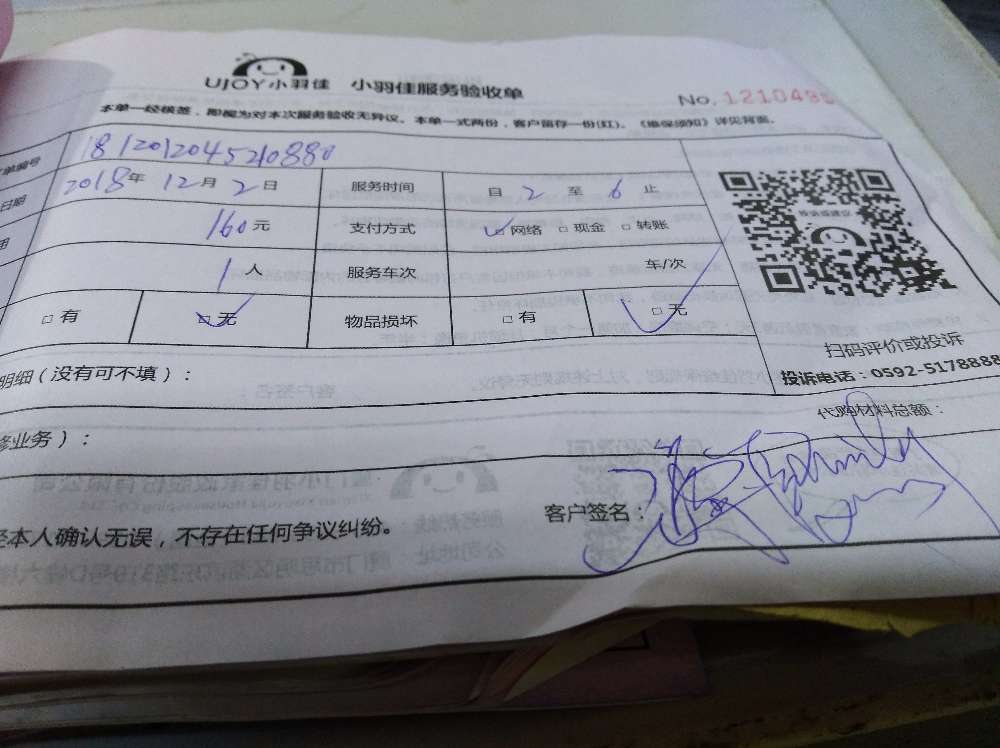 UJOY小羽佳 小羽佳服务验收单
No. 1210498
本单一经核签，即视为对本次服务验收无异议。本单一式两份，客户留存一份(红)。《维保须知》详见背面。
单编号 181201204521088
日期 2018年 12月 2日 服务时间 自 2 至 6 止
用 160元 支付方式 □网络 □现金 □转账
1人 服务车次 车/次
□有 □无 物品损坏 □有 □无
投诉或建议
扫码评价或投诉
投诉电话：0592-5178888
明细（没有可不填）：
代购材料总额：
修业务）：
经本人确认无误，不存在任何争议纠纷。 客户签名：